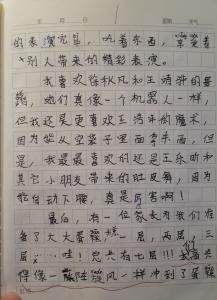 的表演完星，吃着东西，享受着
别人带来的精彩表演。
我喜欢徐秋凡和王清婵的舞
蹈，她们真像一个机器人一样，
但我还是更喜欢王清年的魔术，
因为能从空袋子里面拿东西，但
是，我最喜欢的还是王乐昕和
其它小朋友带来的肚皮舞，因为
能自动下腰，真是厉害啊！
最后，有一位家长为我们准
备了大大蛋糕，一层，两层，三
层……哇！总共有七层!!!我们高兴
得像一阵陆风一样冲到了蛋糕